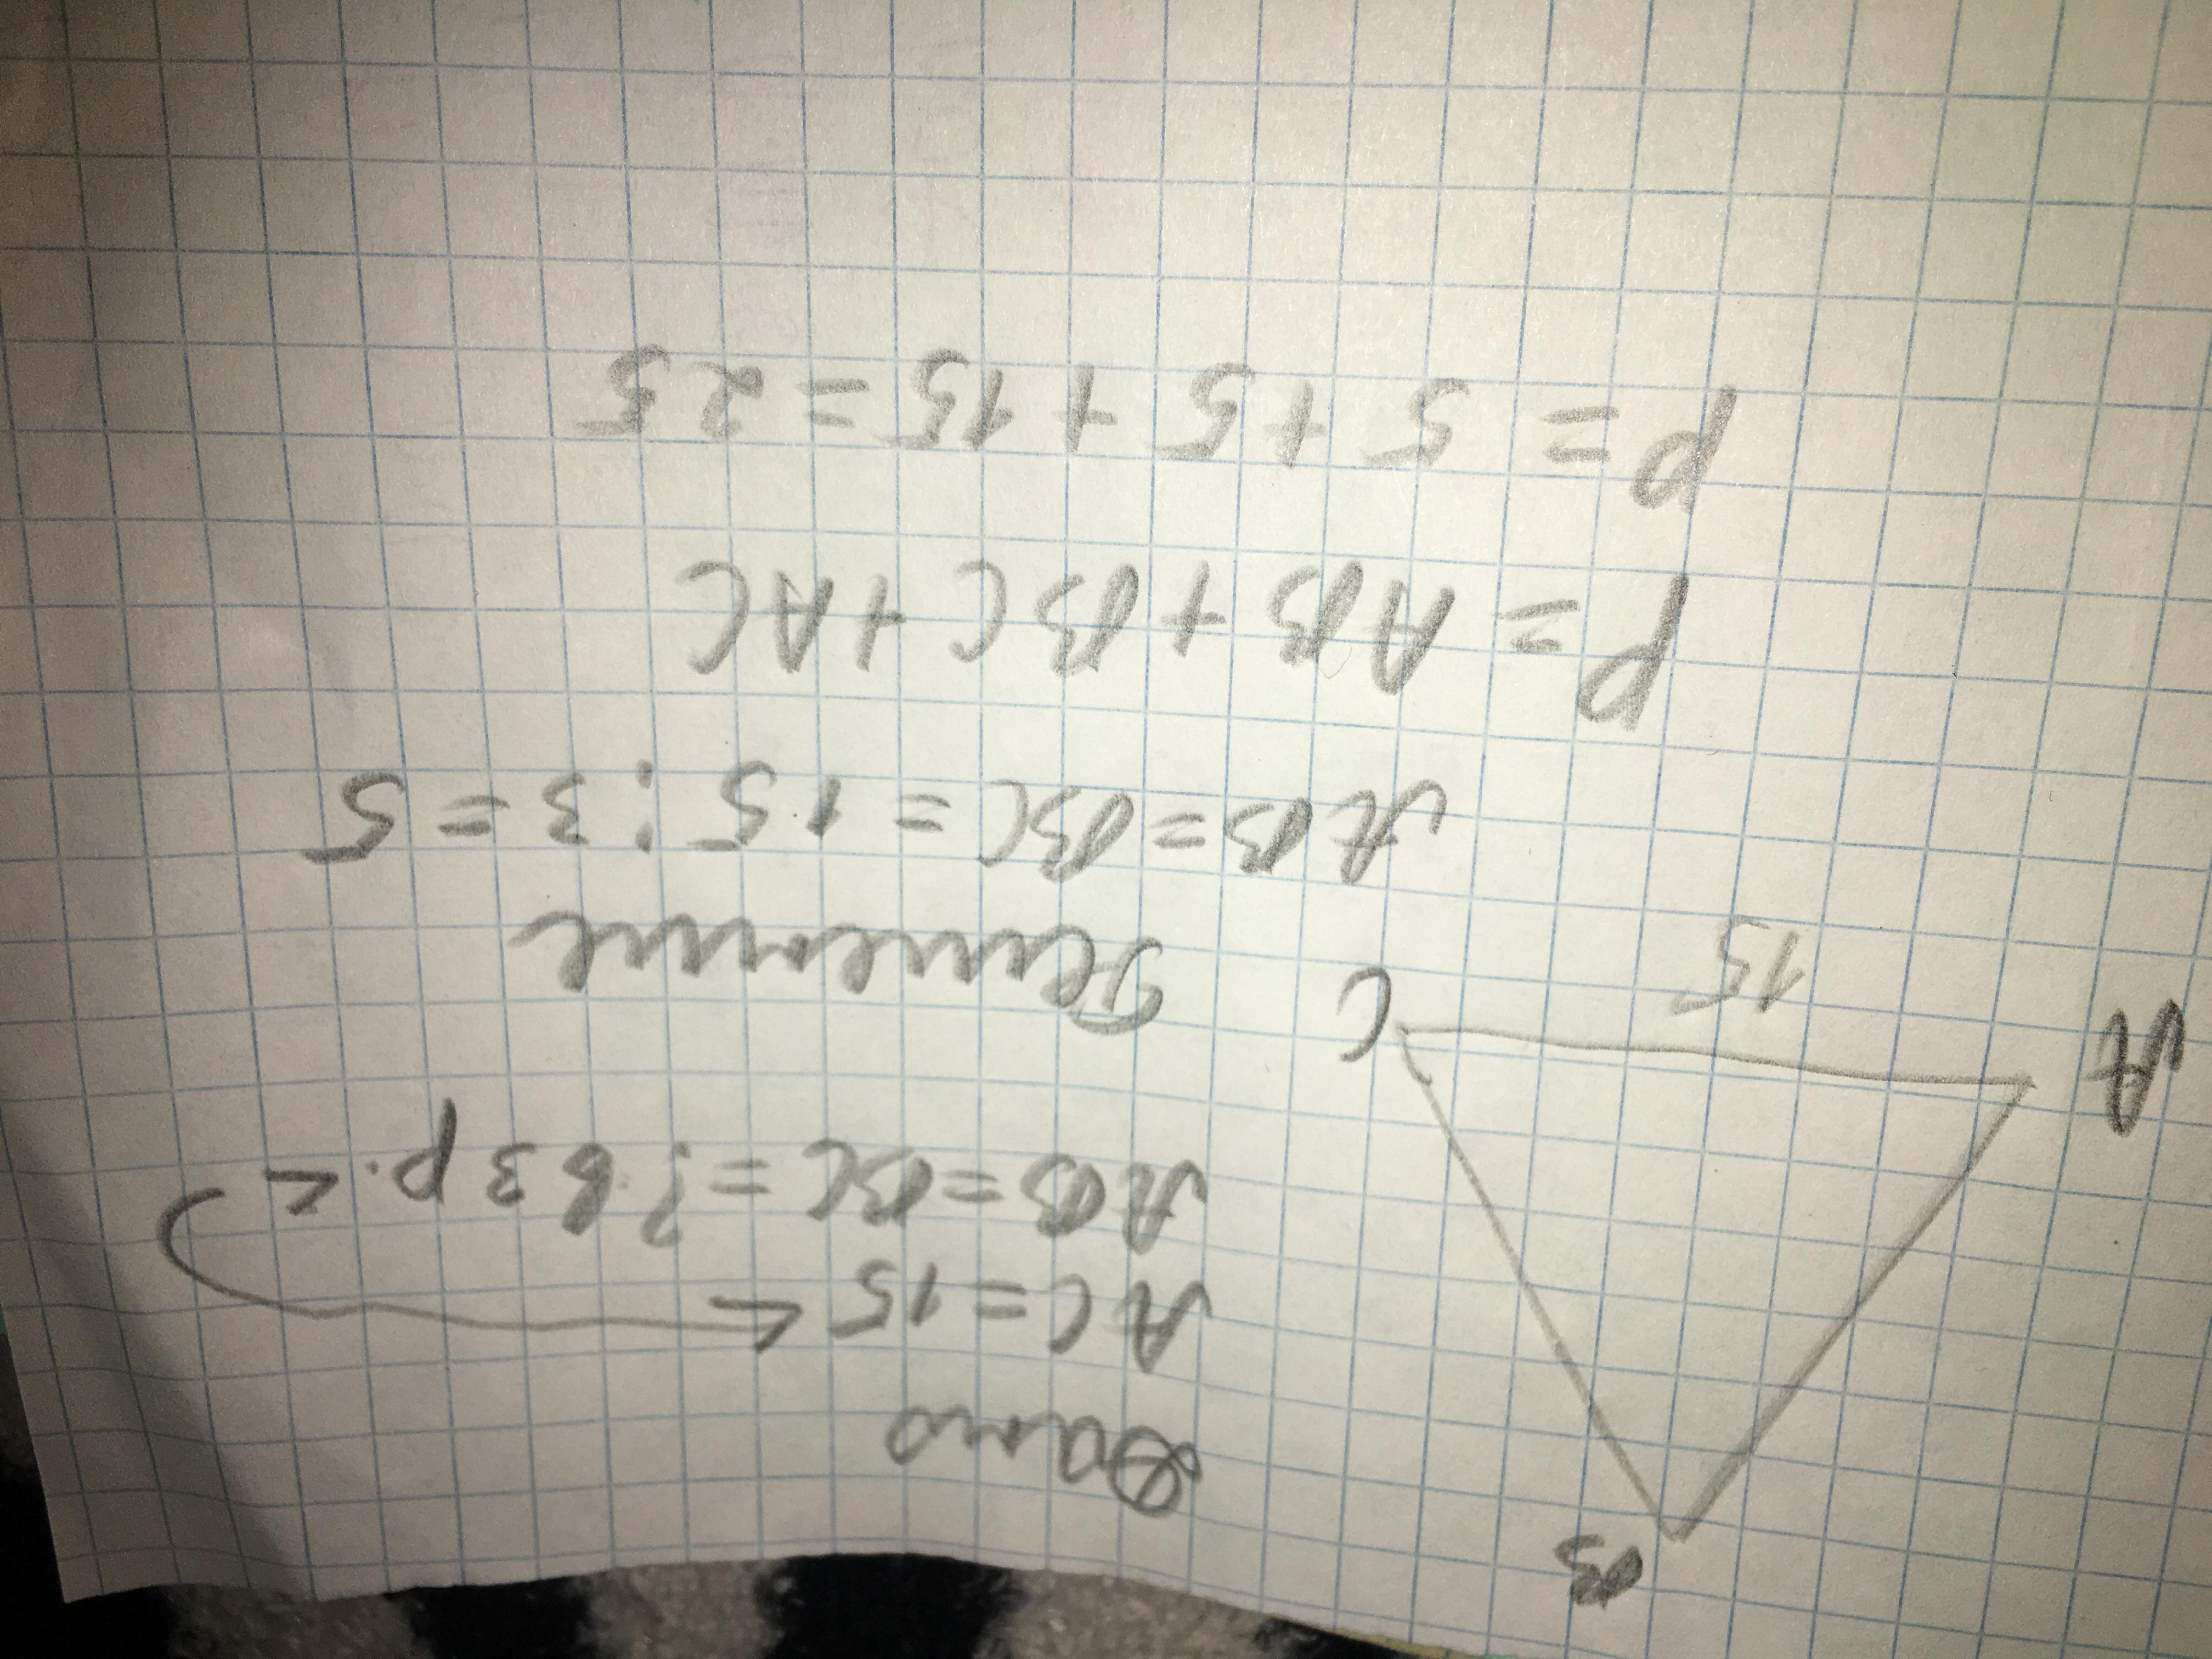 B
A
C
15
Дано
AC = 15
AB = BC = ? в 3 р. <
Решение
AB = BC = 15 : 3 = 5
P = AB + BC + AC
P = 5 + 5 + 15 = 25